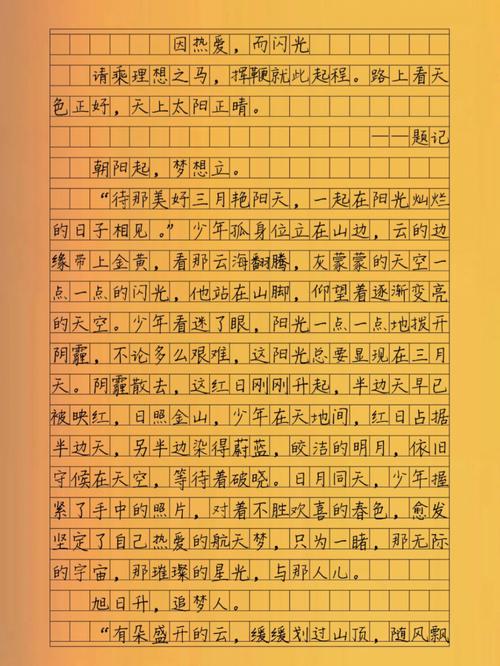 因热爱，而闪光
请乘理想之马，挥鞭就此起程。路上看天
色正好，天上太阳正晴。
——题记
朝阳起，梦想立。
“待那美好三月艳阳天，一起在阳光灿烂
的日子相见。”少年孤身位立在山边，云的边
缘带上金黄，看那云海翻腾，灰蒙蒙的天空一
点一点的闪光，他站在山脚，仰望着逐渐变亮
的天空。少年看迷了眼，阳光一点一点地拨开
阴霾，不论多么艰难，这阳光总要显现在三月
天。阴霾散去，这红日刚刚升起，半边天早已
被映红，日照金山，少年在天地间，红日占据
半边天，另半边染得蔚蓝，皎洁的明月，依旧
守候在天空，等待着破晓。日月同天，少年握
紧了手中的照片，对着不胜欢喜的春色，愈发
坚定了自己热爱的航天梦，只为一睹，那无际
的宇宙，那璀璨的星光，与那人儿。
旭日升，追梦人。
“有朵盛开的云，缓缓划过山顶，随风飘